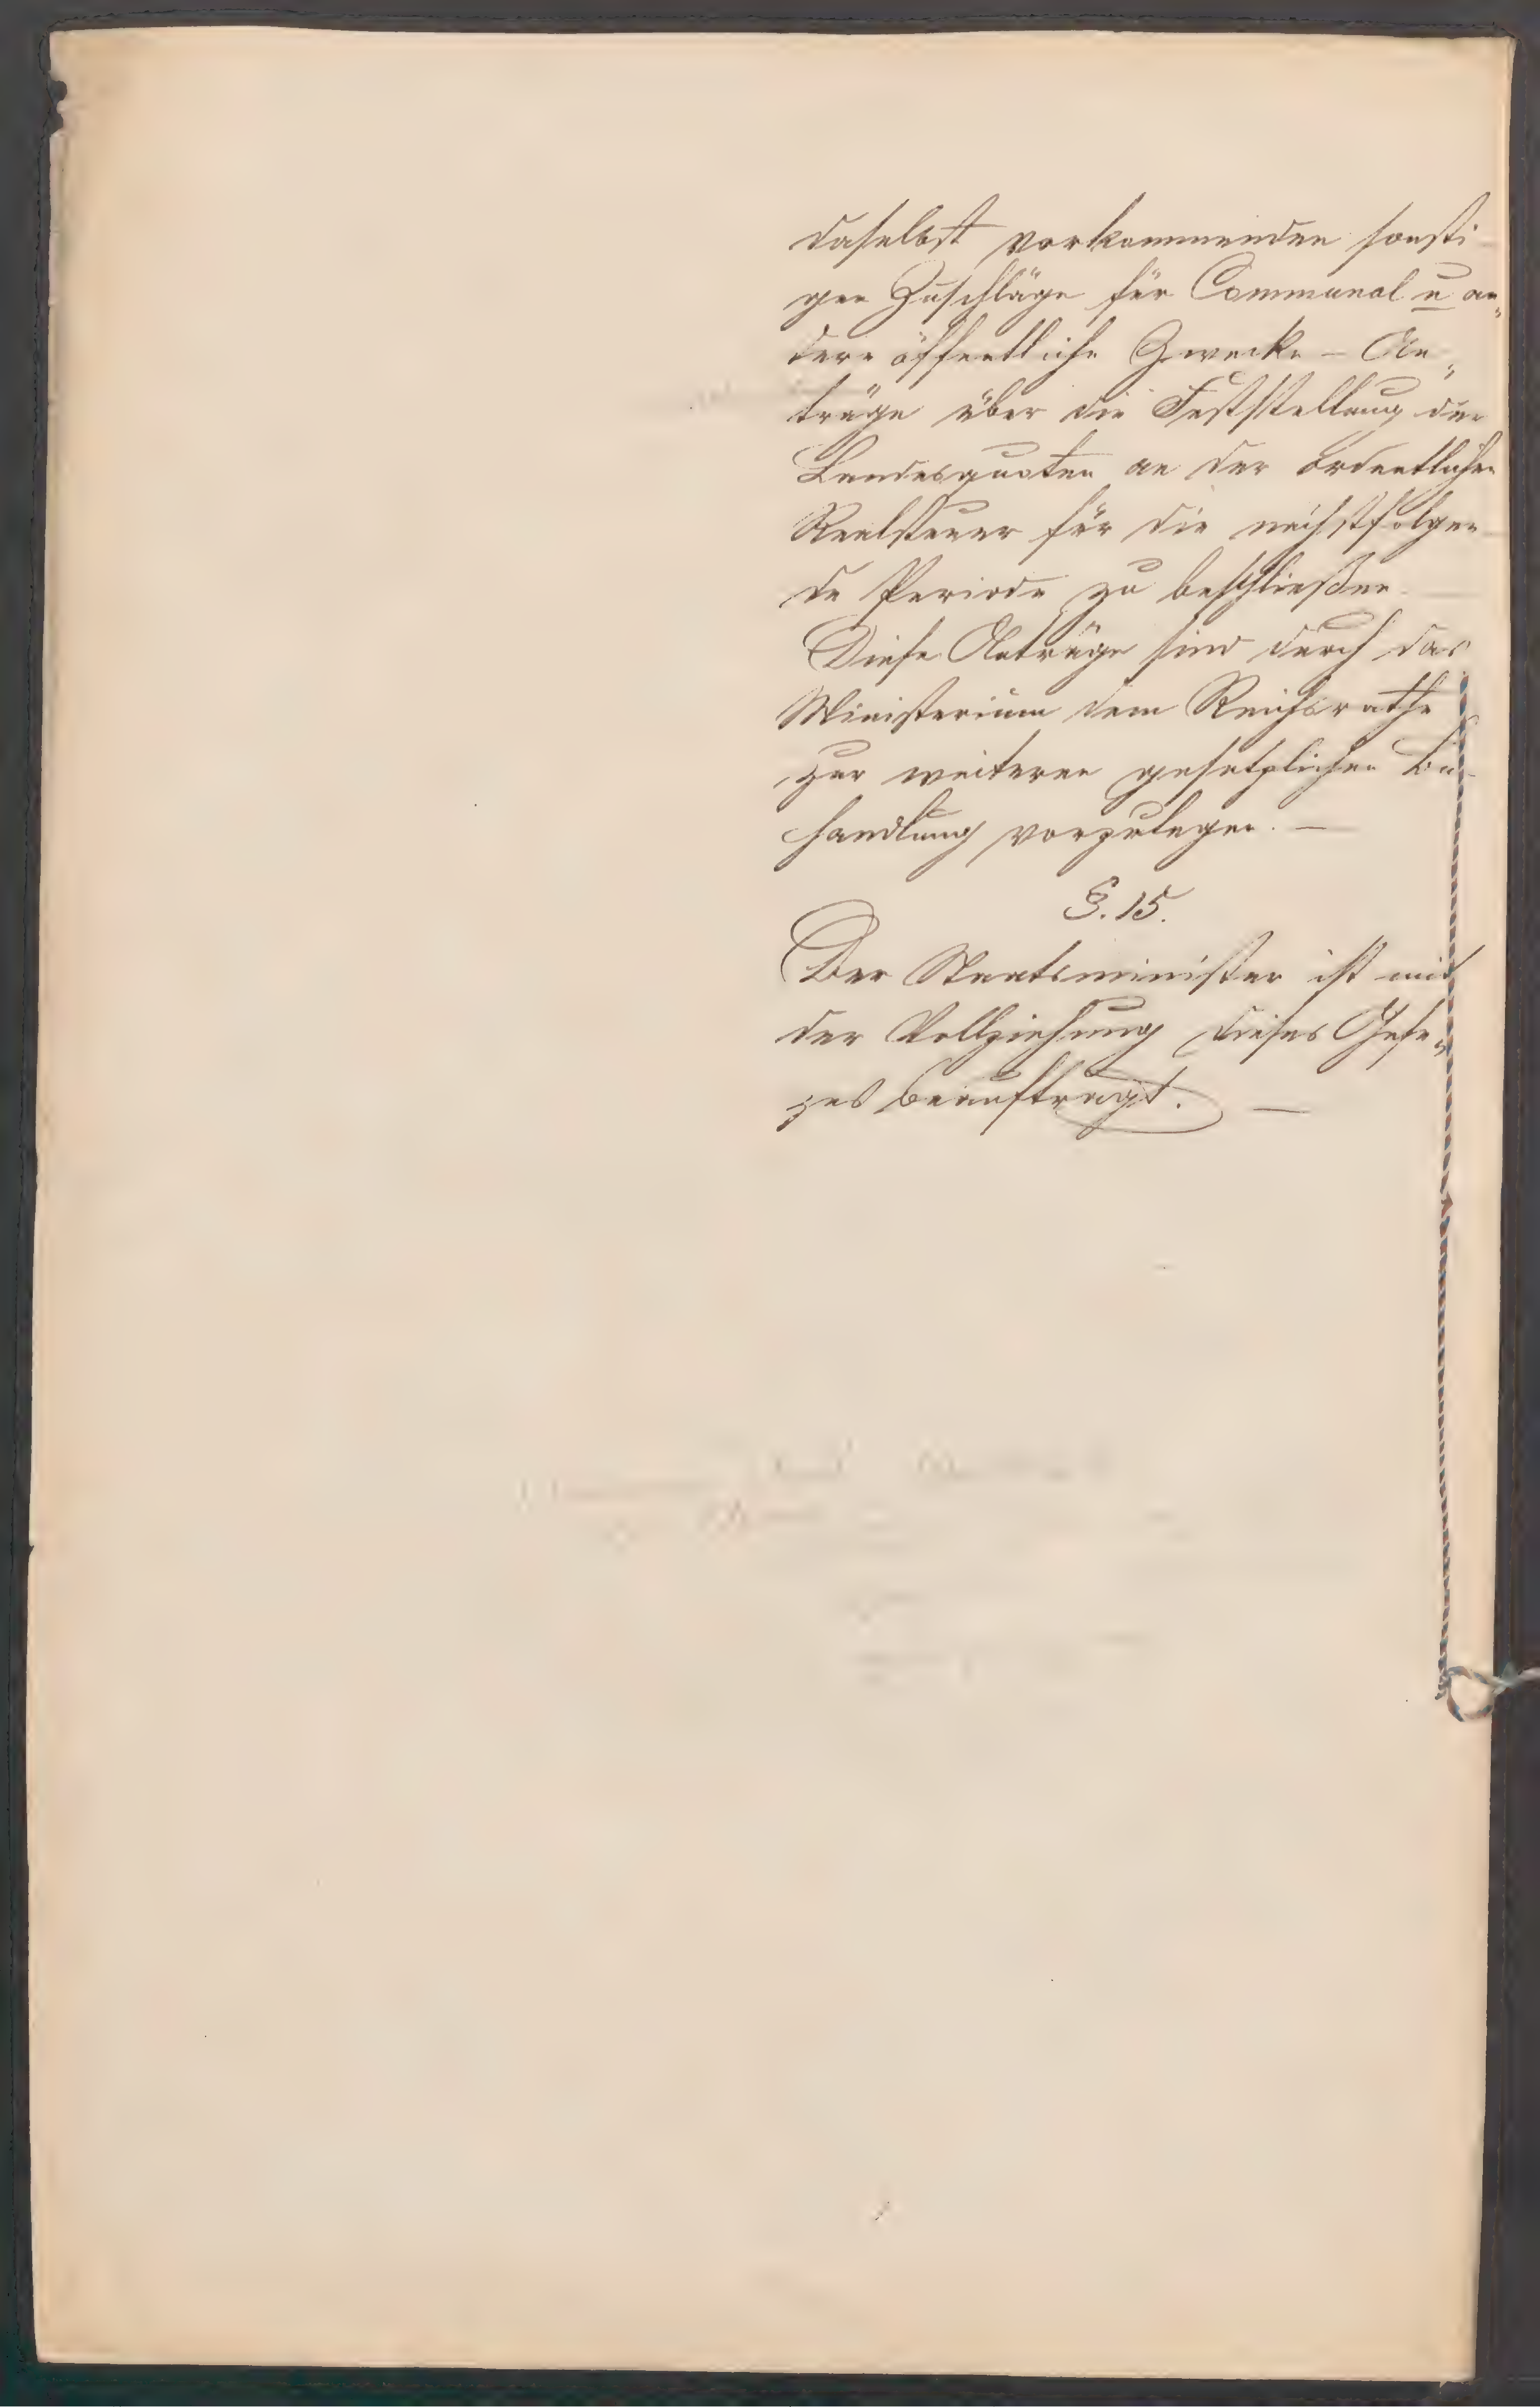 daselbst vorkommenden sonsti-
gen Zuschläge für Communal u an„
dere öffentliche Zwecke – An„
träge über die Feststellung der
Landesquoten an der ordentlichen
Realsteuer für die nächstfolgen-
de Periode zu beschließen. —
Diese Anträge sind durch das
Ministerium dem Reichsrathe
zur weiteren gesetzlichen Be-
handlung vorzulegen. —
§. 15.
Der Staatsminister ist mit
der Vollziehung dieses Gese„
zes beauftragt. —